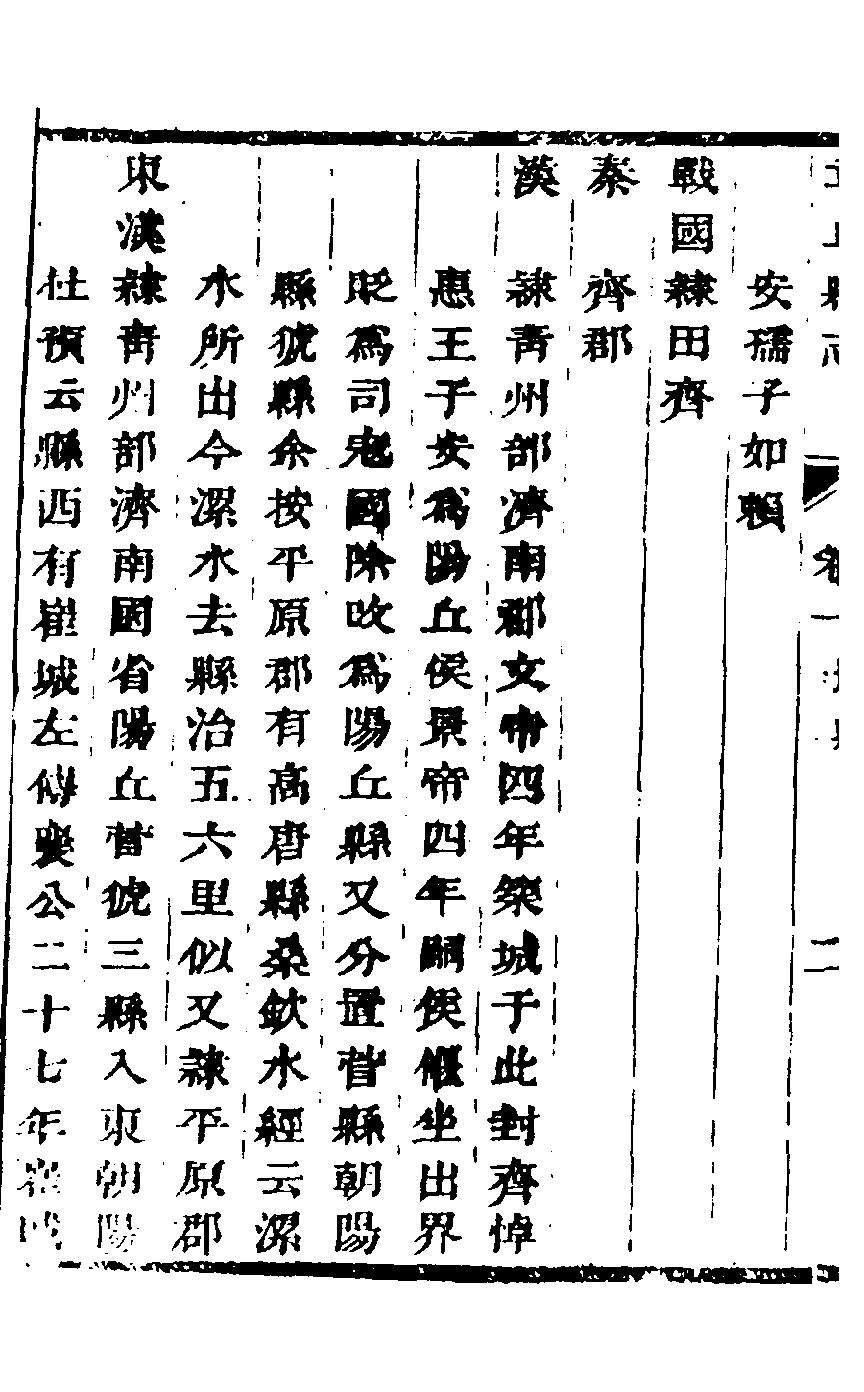 安孺子如賴
戰國隸田齊
秦 齊郡
漢 隸青州部濟南郡文帝四年築城于此封齊悼
惠王子安爲陽丘侯景帝四年嗣侯偃坐出界
貶爲司寇國除改爲陽丘縣又分置菅縣朝陽
縣猇縣余按平原郡有高唐縣桑欽水經云漯
水所出今漯水去縣治五六里似又隸平原郡
東漢隸青州部濟南國省陽丘菅猇三縣入東朝陽
杜預云縣西有崔城左傳襄公二十七年崔成